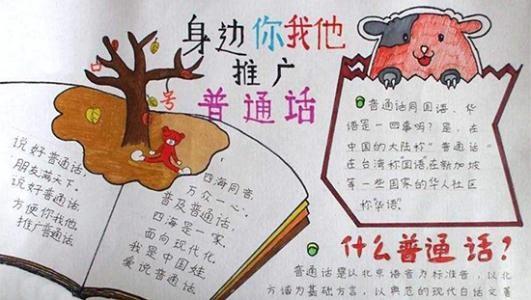 身边你我他
推广
普通话
说好普通话,
朋友满天下,
说好普通话
方便你我他
推广普通话
四海同音,
万众一心,
普及普通话,
四海是一家,
面向现代化,
我是中国娃,
爱说普通话
普通话同国语、华
语是一回事吗?是,在
中国的大陆称“普通话”
在台湾称‘国语’在新加坡
等一些国家的华人社区
称‘华语’
什么普通话?
普通话是以北京语音为标准音,以北
方话为基础方言,以典范的现代白话文著